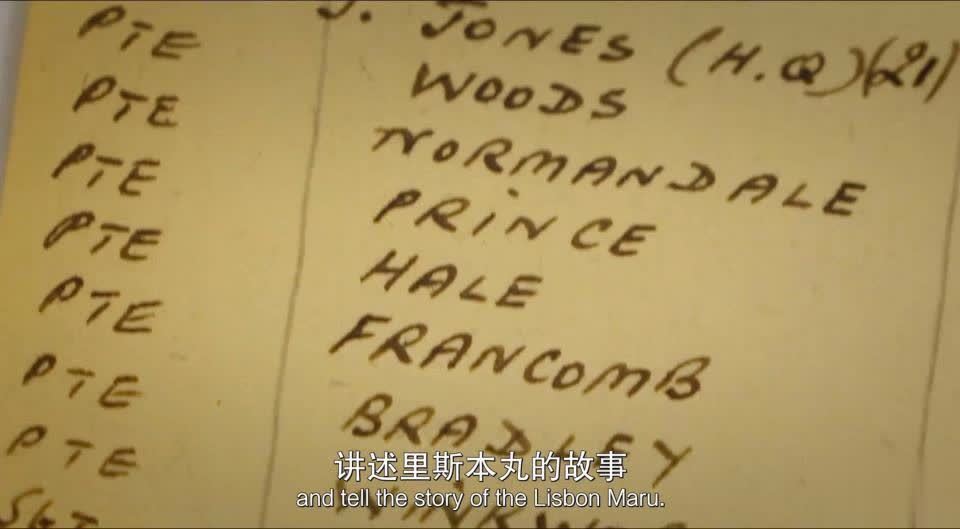 PTE J. JONES (H.Q)(21)
PTE WOODS
PTE NORMANDALE
PTE PRINCE
PTE HALE
PTE FRANCOMB
PTE BRADLEY
讲述里斯本丸的故事
and tell the story of the Lisbon Maru.